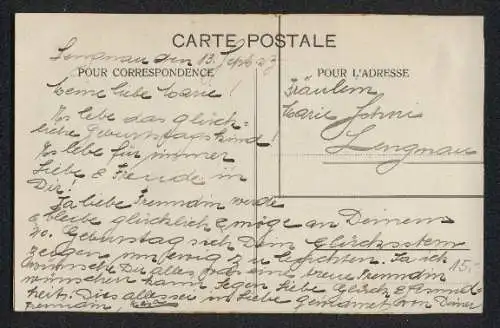 CARTE POSTALE
Lengnau den 13. Sept. 23
POUR CORRESPONDENCE
POUR L'ADRESSE
Meine liebe Marie!
Es lebe das glück-
liche Geburtstagskind!
Es lebe für immer
Liebe & Freude in
Dir!
Fräulein
Marie
Lengnau
Ja liebe Freundin werde
& bleibe glücklich & möge an Deinem
20. Geburtstag sich Dein Glücksstern
zeigen um ewig zu leuchten. Ja ich
wünsche Dir alles was eine treue Freundin
wünschen kann Segen Liebe Glück & Gesund-
heit. Dies alles sei in Liebe gewidmet von Deiner
Freundin,
15.-